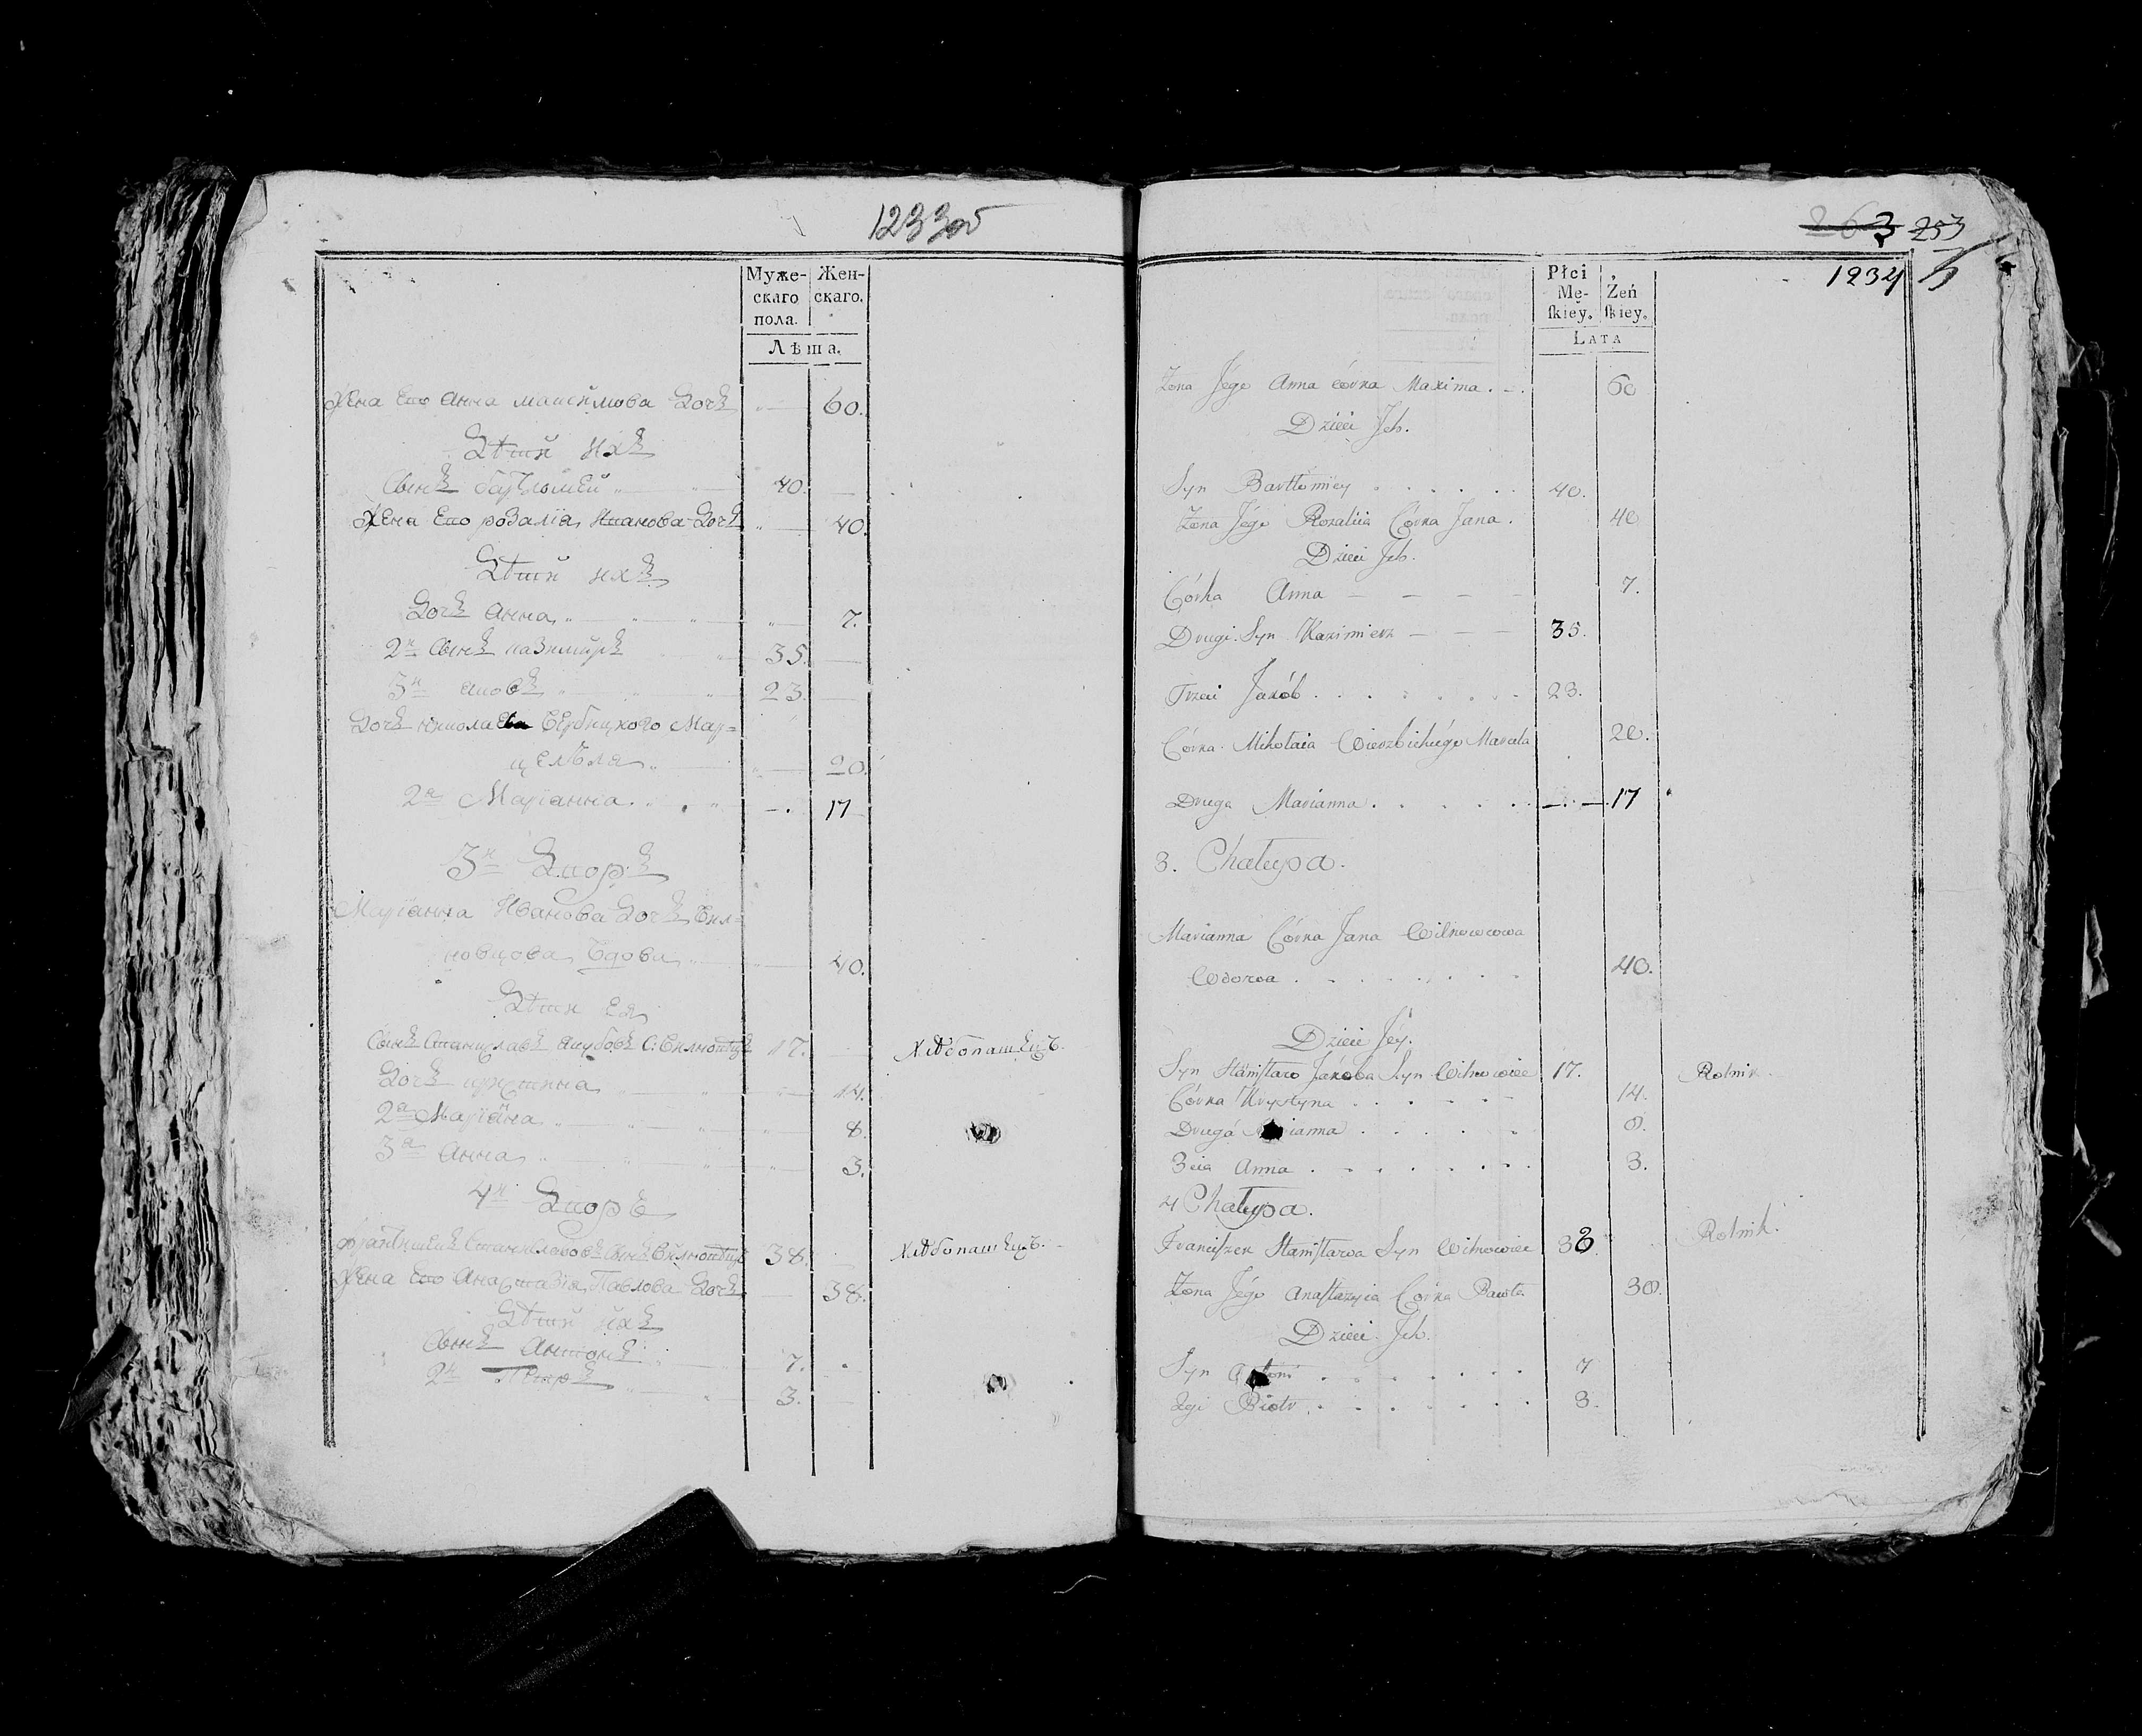 1233об
Муже-
скаго
пола.
Жен-
скаго.
Лѣта.
Жена Его Анна максимова Дочъ 60.
Дѣти ихъ
Сынъ бартломей 40.
Жена Его розалїа Иванова Дочъ 40.
Дѣти ихъ
Дочъ Анна 7.
2й Сынъ казимиръ 35.
3й Яковъ 23.
Дочъ николаева Вербицкого Мар=
целѣля 20.
2а Марїанна 17
3й Дворъ
Марїанна Иванова Дочъ Вил=
новцова Вдова 40.
Дѣти Ея
Сынъ Станиславъ Якубовъ С: 17. Хлѣбопашецъ.
Дочъ 14.
2а Марїана 8.
3а Анна 3.
4й Дворъ
Францишекъ Станиславовъ Сынъ 38. Хлѣбопашецъ.
Жена Его Анастазїа Павлова Дочъ 38.
Дѣти ихъ
Сынъ Антонъ 7.
2й Петръ 3.
263 253
1234
Płci
Mę-
skiey.
Żeń
skiey.
LATA
Żona Jego Anna córka Maxima 60
Dzieci Ich.
Syn Bartłomiey 40.
Żona Jego Rozaliia Córka Jana. 40
Dzieci Ich.
Córka Anna 7.
Drugi Syn Kazimierz 35.
Trzci Jakób 23.
Córka Mikołaia Wierzbickiego Marcela 20.
Druga Marianna 17
3. Chałupa.
Marianna Córka Jana Wilnowcowa
Wdowa 40.
Dzieci Jéy.
Syn Stanisław Jakóba Syn Wilnowiec 17. Rolnik.
Córka Krystyna 14.
Druga ianna 8.
3cia Anna 3.
4 Chałupa.
Franciszek Stanisława Syn Wilnowiec 38 Rolnik.
Żona Jego Anastazyia Córka Pawła 38.
Dzieci Ich.
Syn Antoni 7
2gi Piotr 3.